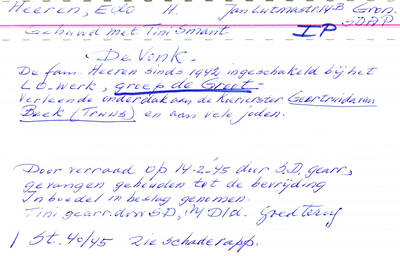 Heeren, Edo H. Jan Lutmastr. 14B Gron.
SDAP
Gehuwd met Tini Smant IP
"De Vonk"
De fam. Heeren sinds 1942 ingeschakeld bij het
LO-werk, groep de Groot.
Verleende onderdak aan de Koerierster Geertruida van
Beek (Truus) en aan vele joden.
Door verraad op 14-2-'45 door S.D. gearr,
gevangen gehouden tot de bevrijding
Inboedel in beslag genomen.
Tini gearr. door SD,
St. 40/45 zie schaderapp.